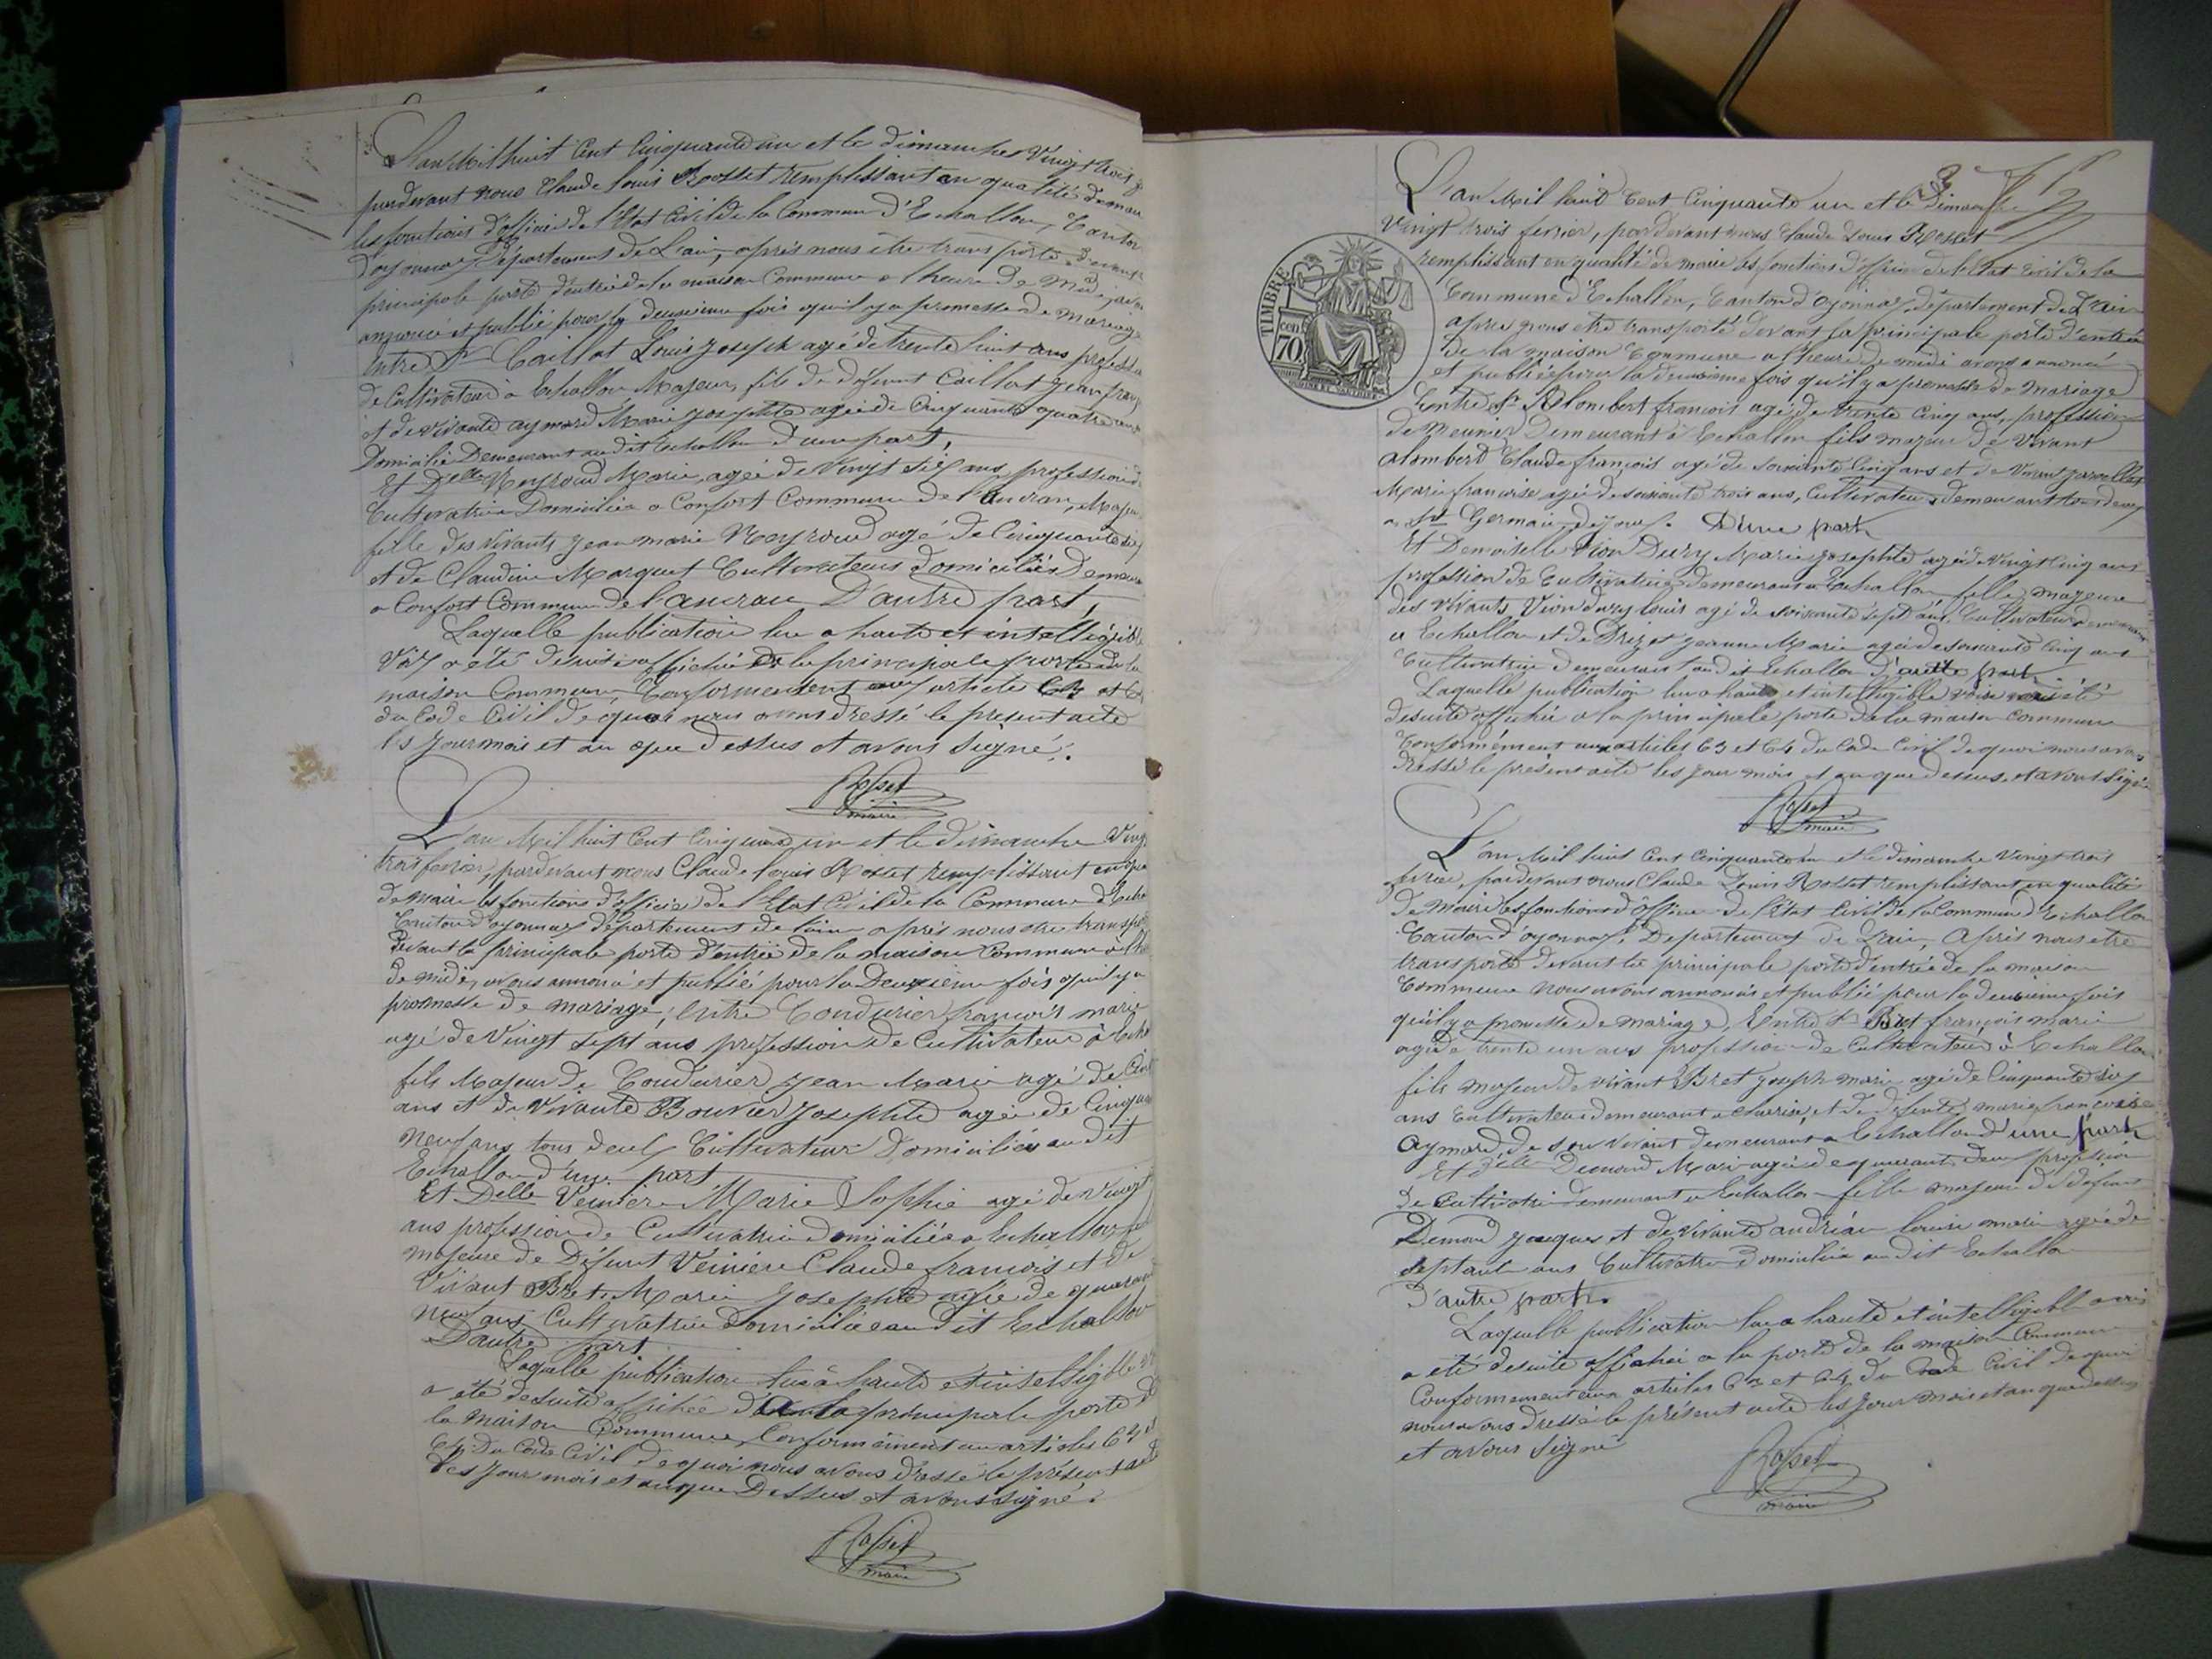 L'an Mil huit Cent Cinquante un et le dimanche Vingt trois
pardevant nous Claude Louis Rosset remplissant en qualité de maire
les fonctions d'officier de l'Etat Civil de la Commune d'Echallon, Canton
d'oyonnax Département de L'ain, après nous être transporté devant
principale porte d'entrée de la maison Commune a l'heure de Midi
annoncé et publié pour la deuxieme fois qu'il y a promesse de mariage
Entre Sr Caillat Louis Joseph agé de trente huit ans profession
de Cultivateur à Echallon Majeur, fils de défunt Caillat Jean
et de vivante aymard Marie Josephte agée de Cinquante quatre ans
Domicilié Demeurant audit Echallon d'une part,
Et Delle Neyroud Marie, agée de Vingt six ans, profession de
Cultivatrice Domiciliée a Confort Commune de Lancran, Majeure
fille des vivants Jean marie Neyroud agé de Cinquante
et de Claudine Marquet Cultivateurs domiciliés
a Confort Commune de Lancran D'autre part,
Laquelle publication lue a haute et intelligible
Voix a été de suite affichée a la principale porte de la
maison Commune, Conformément aux article 63 et
du Code Civil de quoi nous avons dressé le present acte
les jour mois et an que dessus et avons signé.
Rosset
maire
L'an Mil huit Cent Cinquante un et le dimanche Vingt
trois fevrier, pardevant nous Claude Louis Rosset remplissant en
de maire les fonctions d'officier de l'Etat Civil de la Commune d'
Canton d'oyonnax département de l'ain après nous etre
Devant la principale porte d'entrée de la maison Commune a
de midi, avons annoncé et publié pour la Deuxieme fois qu'il y a
promesse de mariage, Entre Coudurier françois marie
agé de Vingt sept ans profession de Cultivateur à
fils Majeur de Coudurier Jean Marie agé de
ans et de Vivante Bouvier Josephte agée de Cinquante
neuf ans tous deux Cultivateurs Domiciliés au dit
Echallon d'une part
Et Delle Veuniere Marie Sophie agé de vingt
ans profession de Cultivatrice domiciliée a Echallon
majeure de Défunt Veiniere Claude francois et de
Vivant Bret Marie Josephte agée de quarante
neuf ans Cultivatrice domiciliée au dit Echallon
D'autre part
Laquelle publication lue à haute et intelligible
a été de suite affichée a la principale porte de
la maison Commune, Conformément au articles 63 et
64 Du Code Civil de quoi nous avons dressé le présent acte
les jour mois et an que Dessus et avons signé.
Rosset
maire
3
L'an Mil huit Cent Cinquante un et le Dimanche
Vingt trois fevrier, pardevant nous Claude Louis Rosset
remplissant en qualité de maire les fonctions d'officier de l'Etat Civil de la
Commune d'Echallon, Canton d'oyonnax, département de L'ain
après nous etre transporté devant la principale porte d'entrée
de la maison Commune a l'heure de midi avons annoncé
et publié pour la deuxieme fois qu'il y a promesse de mariage
Entre Sr Alombert françois agé de trente Cinq ans, profession
de Meunier Demeurant à Echallon fils majeur de Vivant
alombert Claude françois agé de soixante Cinq ans et de Vivant
Marie francoise agée de soixante trois ans, Cultivateurs demeurant tous deux
a St Germain de joux. D'une part
Et Demoiselle Vion Dury Marie Josephte agée de Vingt Cinq ans
profession de Cultivatrice demeurant a Echallon fille majeure
des vivants Vion dury louis agé de soixante sept ans, Cultivateur
a Echallon et de Jeanne Marie agée de soixante Cinq ans
Cultivatrice demeurant au dit Echallon d'autre part
Laquelle publication lue a haute et intelligible voix a été
de suite affichée a la principale porte de la maison commune
Conformément aux articles 63 et 64 du Code Civil de quoi nous avons
dressé le présent acte les jour mois et an que dessus et avons signé
TIMBRE
70 cen
Rosset
maire
L'an Mil huit Cent Cinquante un et le dimanche Vingt trois
fevrier, pardevant nous Claude Louis Rosset remplissant en qualité
de maire les fonctions d'officier de l'Etat Civil de la Commune d'Echallon
Canton d'oyonnax, Département de L'ain, Après nous etre
transporté devant la principale porte d'entrée de la maison
Commune nous avons annoncé et publié pour la deuxieme fois
qu'il y a promesse de mariage, Entre Sr Bret françois marie
agé de trente un ans profession de Cultivateur à Echallon
fils majeur de vivant Bret Joseph marie agé de Cinquante six
ans Cultivateur demeurant a et de défunte marie francoise
Aymard, de son vivant demeurant a Echallon d'une part
Et Delle Demond Marie agée de quarante deux profession
de Cultivatrice demeurant a Echallon fille majeure de défunt
Demond Jacques et de vivante andréan louise marie agée de
septante ans Cultivatrice Domiciliée au dit Echallon
D'autre part.
Laquelle publication lue a haute et intelligible voix
a été de suite affichée a la porte de la maison Commune
Conformement aux articles 63 et 64 du Code Civil de quoi
nous avons dressé le présent acte les jour mois et an que dessus
et avons signé
Rosset
maire